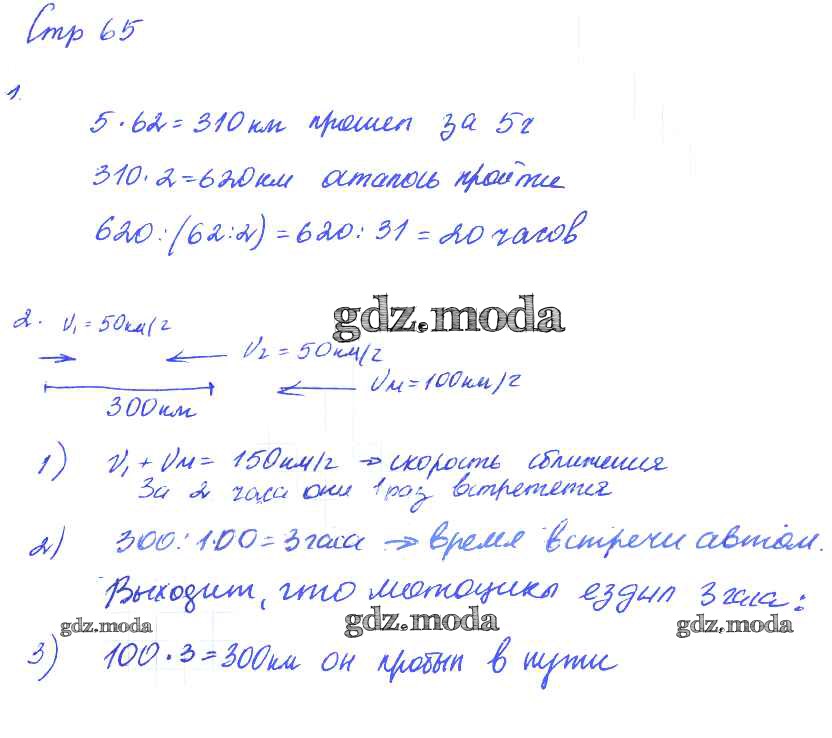 Стр 65
1.
5 · 62 = 310 км прошел за 5 ч
310 · 2 = 620 км осталось пройти
620 : (62 : 2) = 620 : 31 = 20 часов
2. V₁ = 50 км/ч
V₂ = 50 км/ч
Vм = 100 км/ч
300 км
gdz.moda
1) V₁ + Vм = 150 км/ч → скорость сближения
За 2 часа они 1 раз встретется
2) 300 : 100 = 3 часа → время встречи автом.
Выходит, что мотоцикл ездил 3 часа:
gdz.moda gdz.moda gdz.moda
3) 100 · 3 = 300 км он пробыл в пути